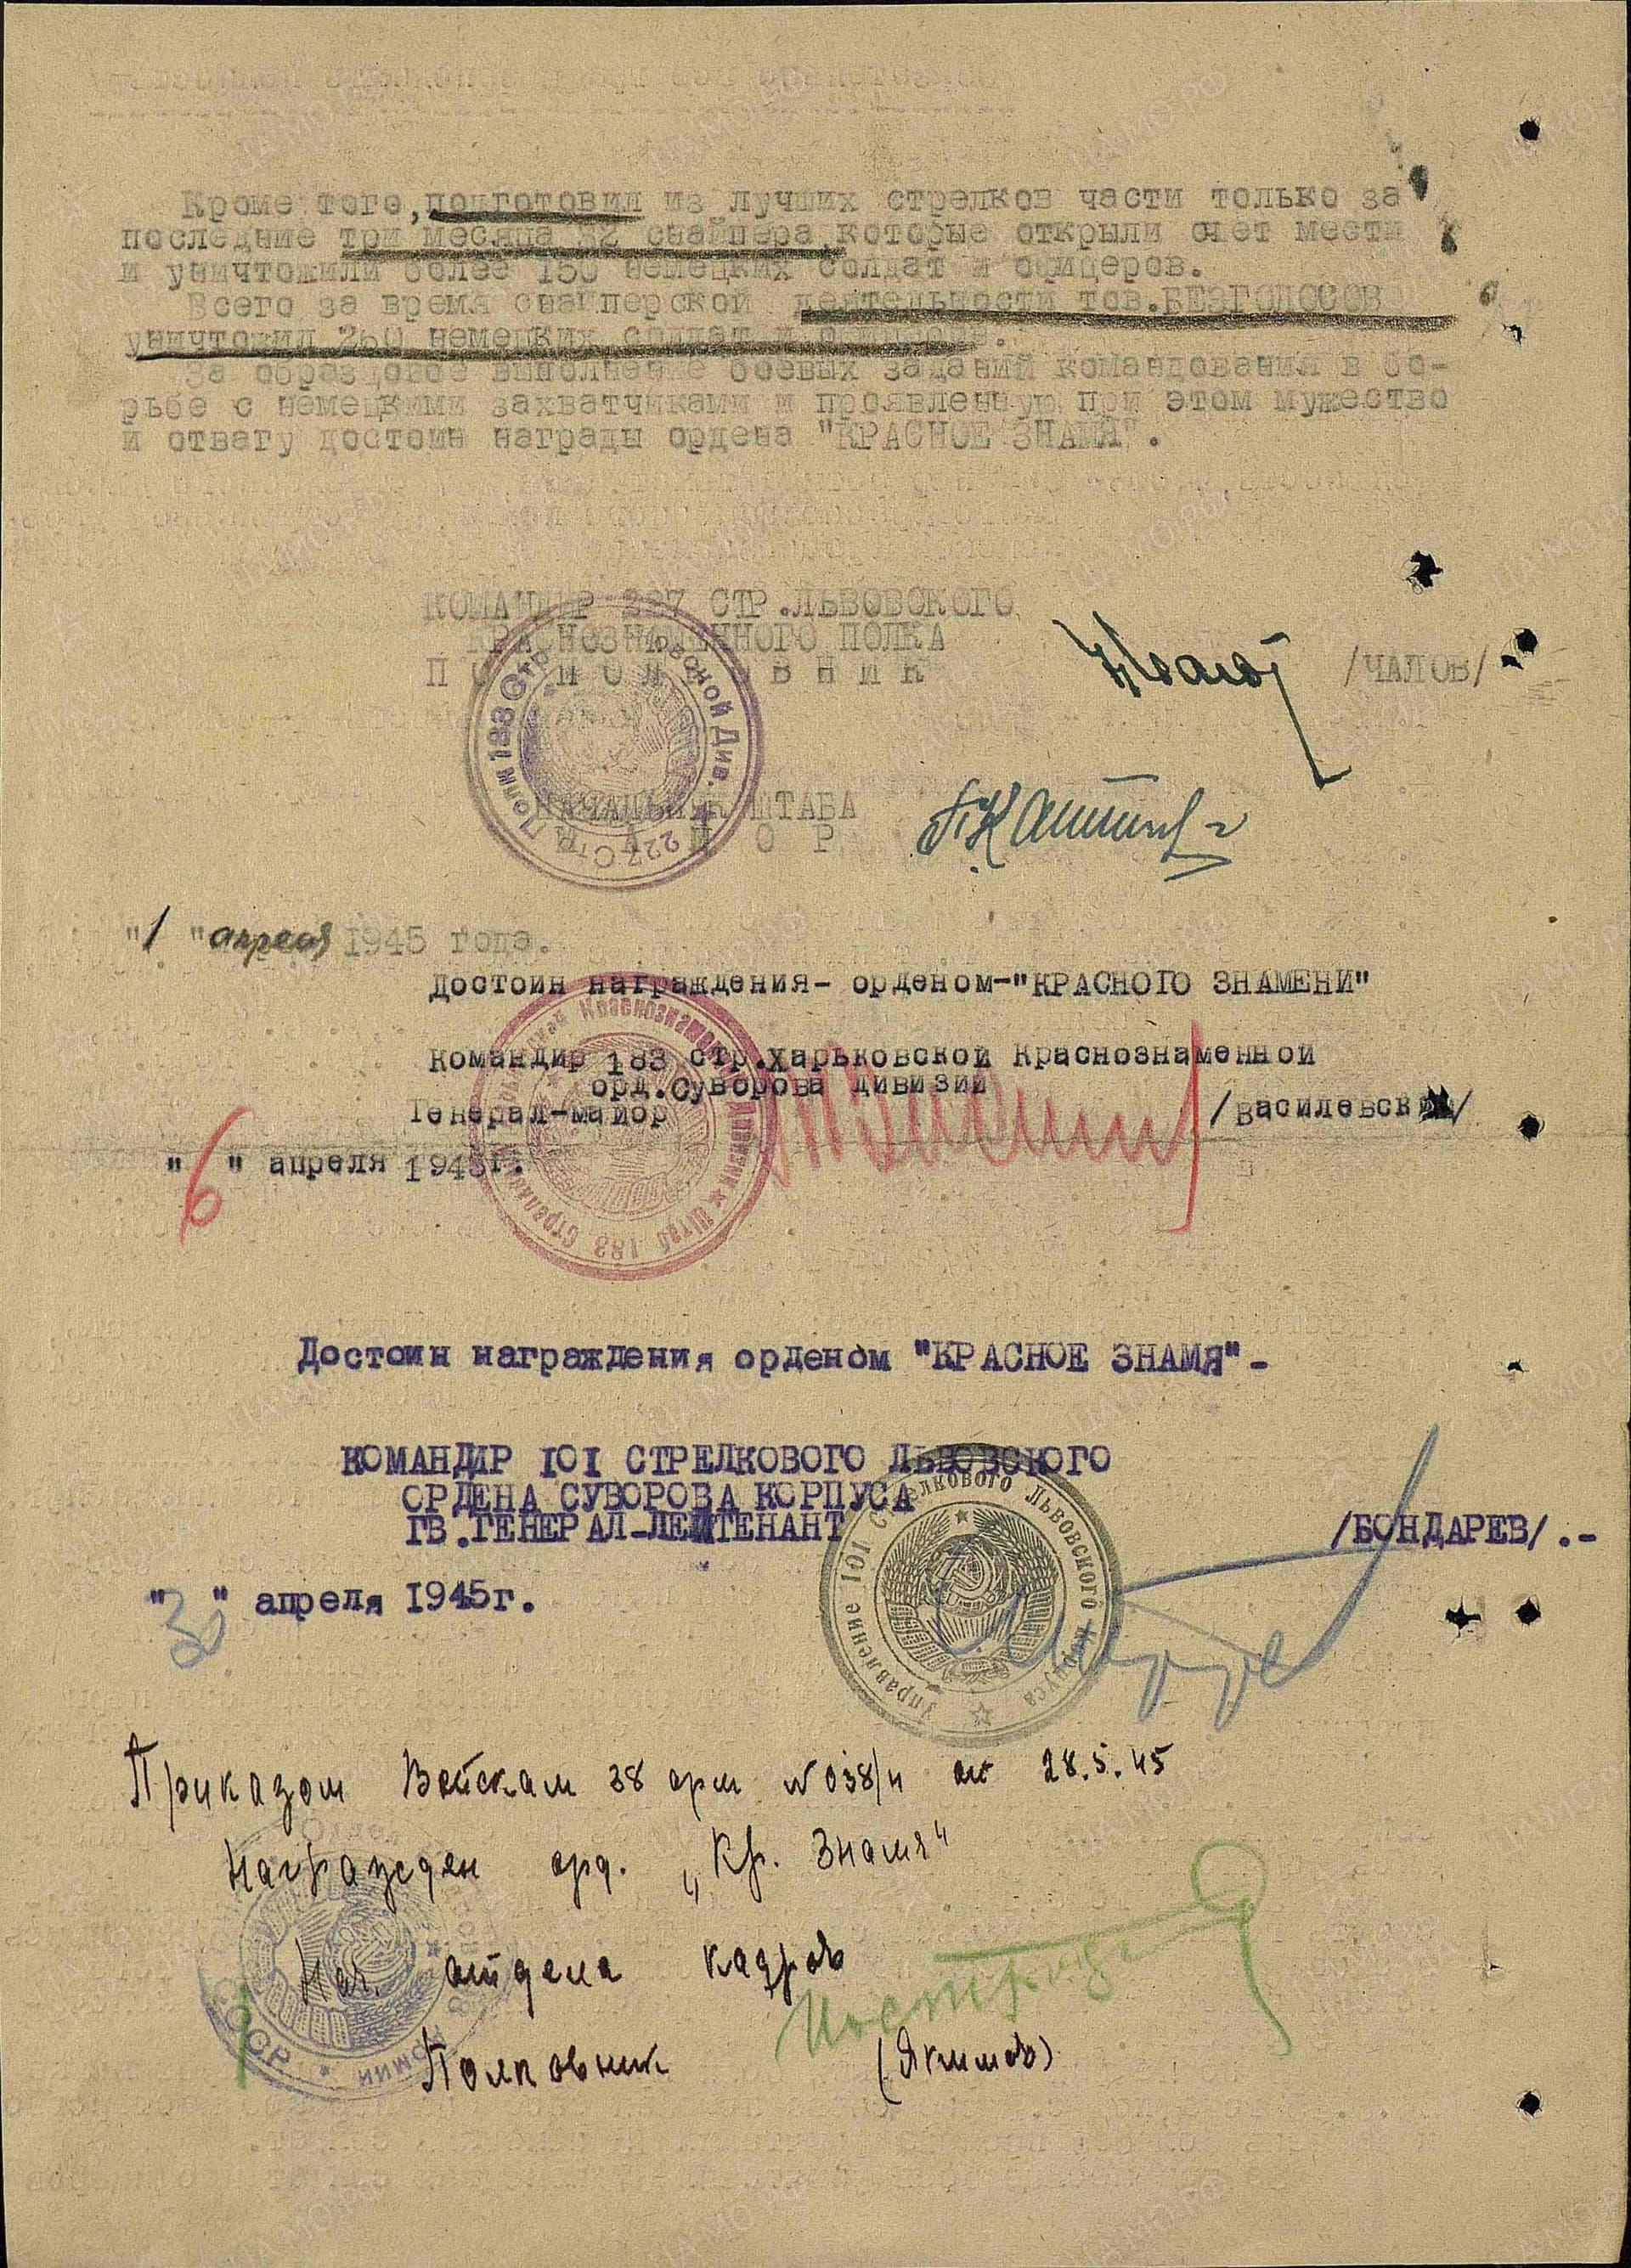 Кроме того, подготовил из лучших стрелков части только за
последние три месяца 32 снайпера, которые открыли счет мести
и уничтожили более 150 немецких солдат и офицеров.
Всего за время снайперской деятельности тов.БЕЗГОЛОСОВ
уничтожил 260 немецких солдат и офицеров.
За образцовое выполнение боевых заданий командования в бо-
рьбе с немецкими захватчиками и проявленную при этом мужество
и отвагу достоин награды ордена "КРАСНОЕ ЗНАМЯ".
КОМАНДИР 227 СТР.ЛЬВОВСКОГО
КРАСНОЗНАМЕННОГО ПОЛКА
/ЧАЛОВ/
НАЧАЛЬНИК ШТАБА
М А Й О Р
227 Стр. Полк 183 Стр Див.
"1" апреля 1945 года.
Достоин награждения- орденом-"КРАСНОГО ЗНАМЕНИ"
Командир 183 стр.Харьковской Краснознаменной
орд.Суворова дивизии
Генерал-майор /Василевский/
"6" апреля 1945г.
Штаб 183 Стрелковой Краснознаменной Дивизии
Достоин награждения орденом "КРАСНОЕ ЗНАМЯ"-
КОМАНДИР 101 СТРЕЛКОВОГО ЛЬВОВСКОГО
ОРДЕНА СУВОРОВА КОРПУСА
ГВ.ГЕНЕРАЛ-ЛЕЙТЕНАНТ /БОНДАРЕВ/.-
"30" апреля 1945г.
Управление 101 Стрелкового Львовского Корпуса
Приказом Войскам 38 арм N 038/н от 28.5.45
Награжден орд. „Кр. Знамя"
Нач. отдела кадров
Полковник (Якимов)
СССР
ЦАМО.РФ